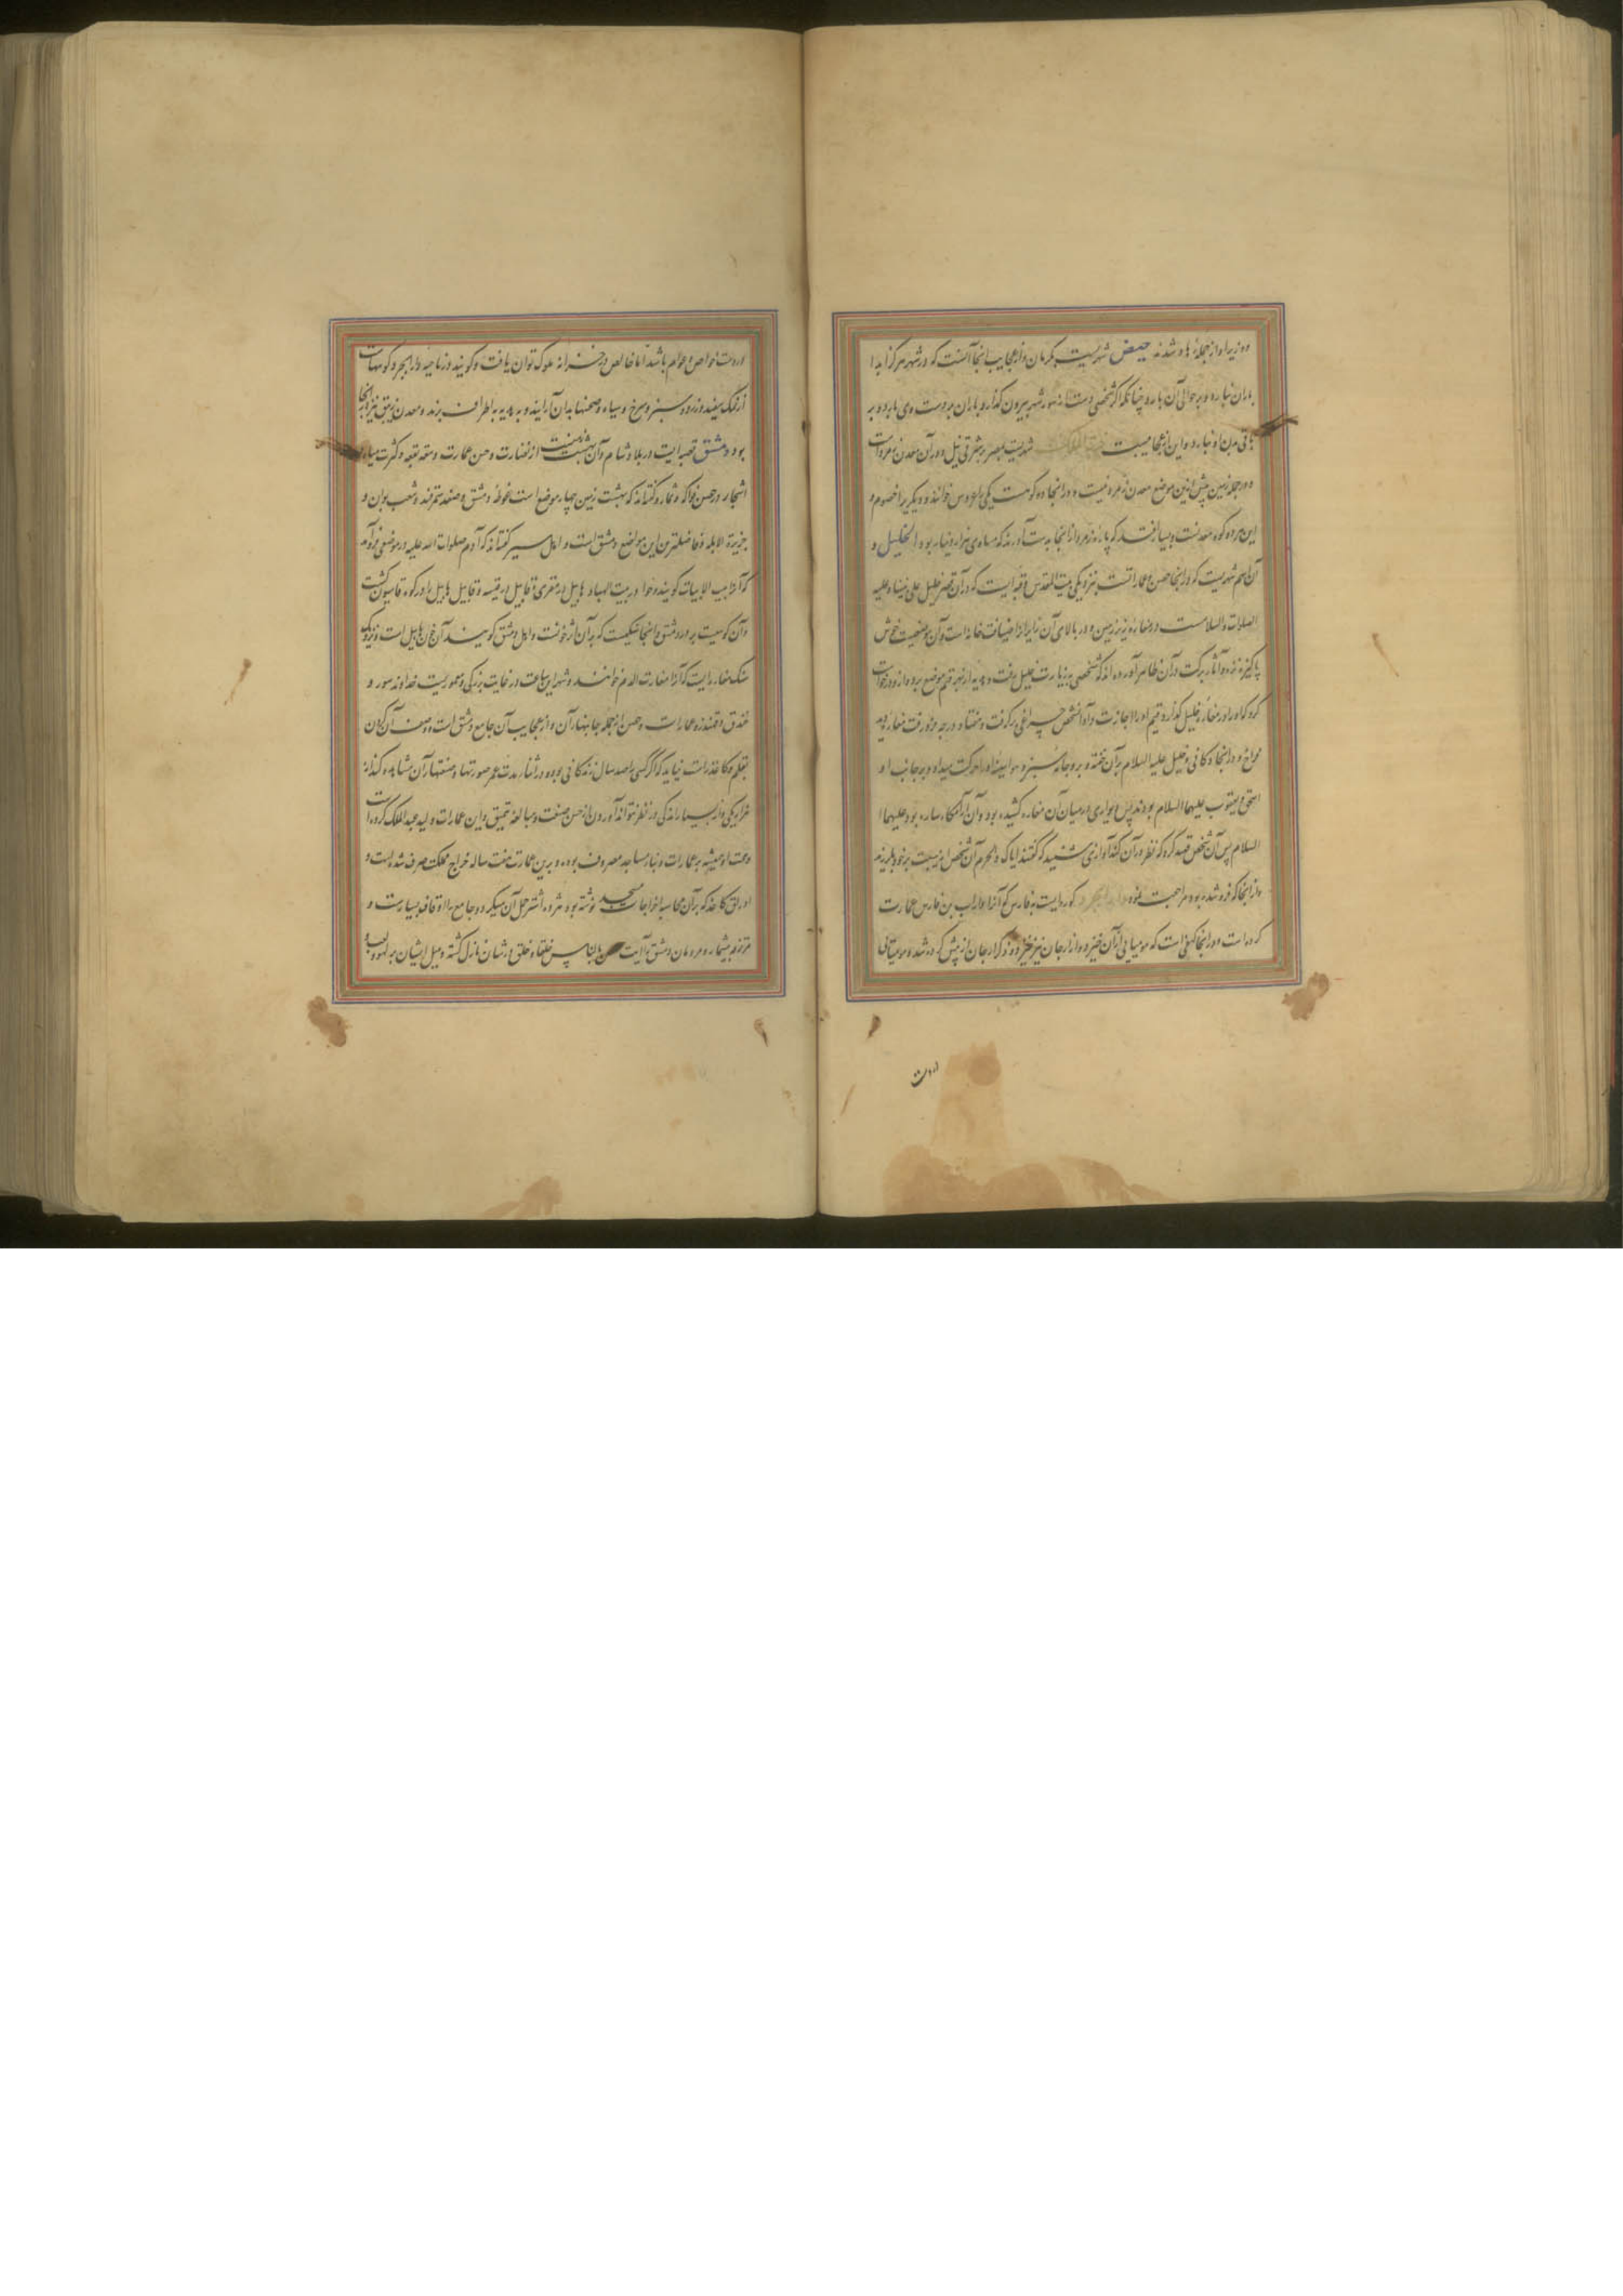 ده زیر او از جمله هاد شدند حیص شهریست بکرمان و از عجایب انجا آنست که در شهر هرگز ابدا
باران نبارد و بر حوالی آن بارد چنانکه اگر شخصی دست از سور شهر بیرون کند از و باران بر دست وی بارد و بر
باقی بدن او نبارد و این از عجایبست شهریست بمصر بر شرقی نیل و در آن معدن زمرد است
و در جمله زمین پیش ازین موضع معدن زمرد نیست و در انجا دو کوهست یکی را عروس خوانند و دیگری را خصوم و
این هر دو کوه معدنست و بسیار افتد که پاره زمرد از انجا بدست آورند که مساوی هزار دینار بود الخلیل و
آن اسم شهریست که در انجا حسن و عماراتست بنزدیکی بیت المقدس و قریه ایست که در آن قبر خلیل علی نبینا و علیه
الصلات و السلامست در مغاره زیر زمین و در بالای آن زایرانرا ضیافت خانه است و آن موضعیست خوش
پاکیزه نزه و آثار برکت در آن ظاهر آورده اند که شخصی بزیارت خلیل رفت و هدیه از بهر قیم موضع برد و ازو درخواست
کرد که او را در مغاره خلیل گذارد قیم او را اجازت داد آنشخص چراغی برگرفت و هفتاد درجه فرو رفت مغاره دید
فراخ و در انجا دکانی و خلیل علیه السلام بر آن خفته و برو جامه سبز و هوا بینه او را حرکت میداد و بر جانب او
اسحق و یعقوب علیهما السلام بودند پس دیواری در میان آن مغاره کشیده بود و آن آرامگاه ساره بود علیهما ا
السلام پس آن شخص قصد کرد که نظر در آن کند آوازی شنید که گفتند ایاک و الحرم آن شخص از هیبت بر خود بلرزید
و از انجا که فرو شده بود مراجعت نمود کوره ایست بفارس که آنرا داراب بن فارس عمارت
کرده است و در انجا کهفی است که مومیایی از آن خیزد و از ارجان نیز خیزد و ذکر ارجان از پیش کرده شد و مومیائی
در دست
در دست خواص و عوام باشد اما خالص در خزانه ملوک توان یافت و گویند در ناحیه دارابجرد کوههاست
از نمک سفید و زرد و سبز و سرخ و سیاه و صحنها بدان آرایند و بهدیه به اطراف برند و معدن زیبق نیز در انجا
بود دمشق قصبه ایست در بلاد شام و آن بهشت زمینست از نضارت و حسن عمارت و سعه بقعه و کثرت میاه
اشجار و حسن فواکه و ثمار و گفته اند که بهشت زمین چهار موضع است غوطه دمشق و صغد سمرقند و شعب بوان و
جزیرة الابله و فاضلترین این مواضع دمشق است و اهل سیر گفته اند که آدم صلوات الله علیه در موضعی فرو آمد
که آنرا بیت الابیات گویند و حوا در بیت لهیا و هابیل در مقری و قابیل در قینیه و قابیل هابیل را در کوه قاسیون کشت
و آن کوهیست بر در دمشق و انجا سنگیست که بر آن اثر خونست و اهل دمشق گویند آن خون هابیل است و نزدیک
سنگ مغاره ایست که آنرا مغارت الدم خوانند و شهر این ساعت در غایت بزرگی و معموریست خداوند سور و
خندق و قهندزه عمارات و حسن از جمله جانبها و از عجایب آن جامع دمشق است و وصف آن کردن
بقلم و کاغذ راست نیاید که اگر کسی را صد سال زندگانی بود و در اثنا مدت عمر صورتها و صنعتها آن مشاهده کند از
هزار یکی و از بسیار اندکی در نظر نتواند آوردن از حسن صنعت و مبالغه تنمیق و این عمارات ولید عبد الملک کرده است
و همت او همیشه بر عمارات و بناء مساجد مصروف بوده و برین عمارت هفت ساله خراج مملکت صرف شده است و
اوراق کاغذ که بر آن محاسبه اخراجات مسجد نوشته بود هژده اشتر حمل آن میکرد و جامع را اوقاف بسیارست و
متنزه بیشمار و مردمان دمشق را آیت پس خلفاء و خلق در شان نازل گشته و میل ایشان بر لهو و لعب و